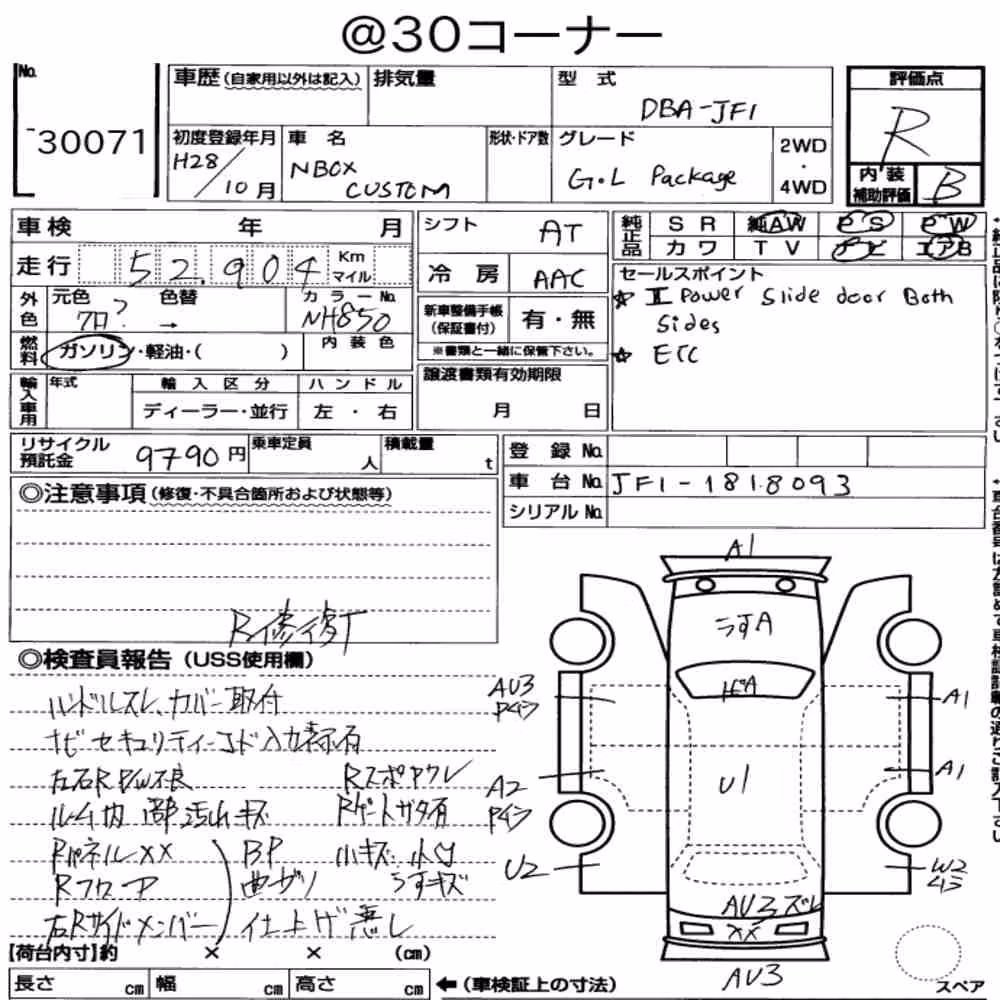 @30コーナー
No.
30071
車歴(自家用以外は記入)
排気量
型式
DBA-JF1
評価点
R
初度登録年月
H28/10月
車名
NBOX
CUSTOM
形状・ドア数
グレード
G・L Package
2WD
・
4WD
内装
補助評価
B
車検 年 月
シフト
AT
純正品
SR 純AW PS PW
カワ TV ナビ エアB
走行
52,904
Km
マイル
冷房
AAC
セールスポイント
☆ Power Slide door Both
Sides
☆ ETC
外色
元色
クロ?
色替
→
カラーNo.
NH850
新車整備手帳
(保証書付)
有・無
※書類と一緒に保管下さい。
燃料
ガソリン・軽油・( )
内装色
輸入車用
年式
輸入区分
ディーラー・並行
ハンドル
左・右
譲渡書類有効期限
月 日
リサイクル
預託金
9790円
乗車定員
人
積載量
t
登録No.
車台No.
JF1-1818093
シリアルNo.
◎注意事項(修復・不具合箇所および状態等)
R修復
◎検査員報告(USS使用欄)
ハンドルスレ、カバー取付
ナビセキュリティーコード入力表示有
左右R P/W不良
Rスポアクレ
ルーム内 部汚れキズ
Rゲートガタ有
RパネルXX
BP
小キズ 小凹
Rフロア
曲ザリ
うすキズ
左Rサイドメンバー
仕上げ悪し
A1
うすA
ビA
AU3
Pイラ
A1
U1
A2
Pイラ
A1
U2
W2
ムラ
AU3ズレ
XX
AU3
スペア
【荷台内寸】約 × × (cm)
長さ cm 幅 cm 高さ cm
←(車検証上の寸法)